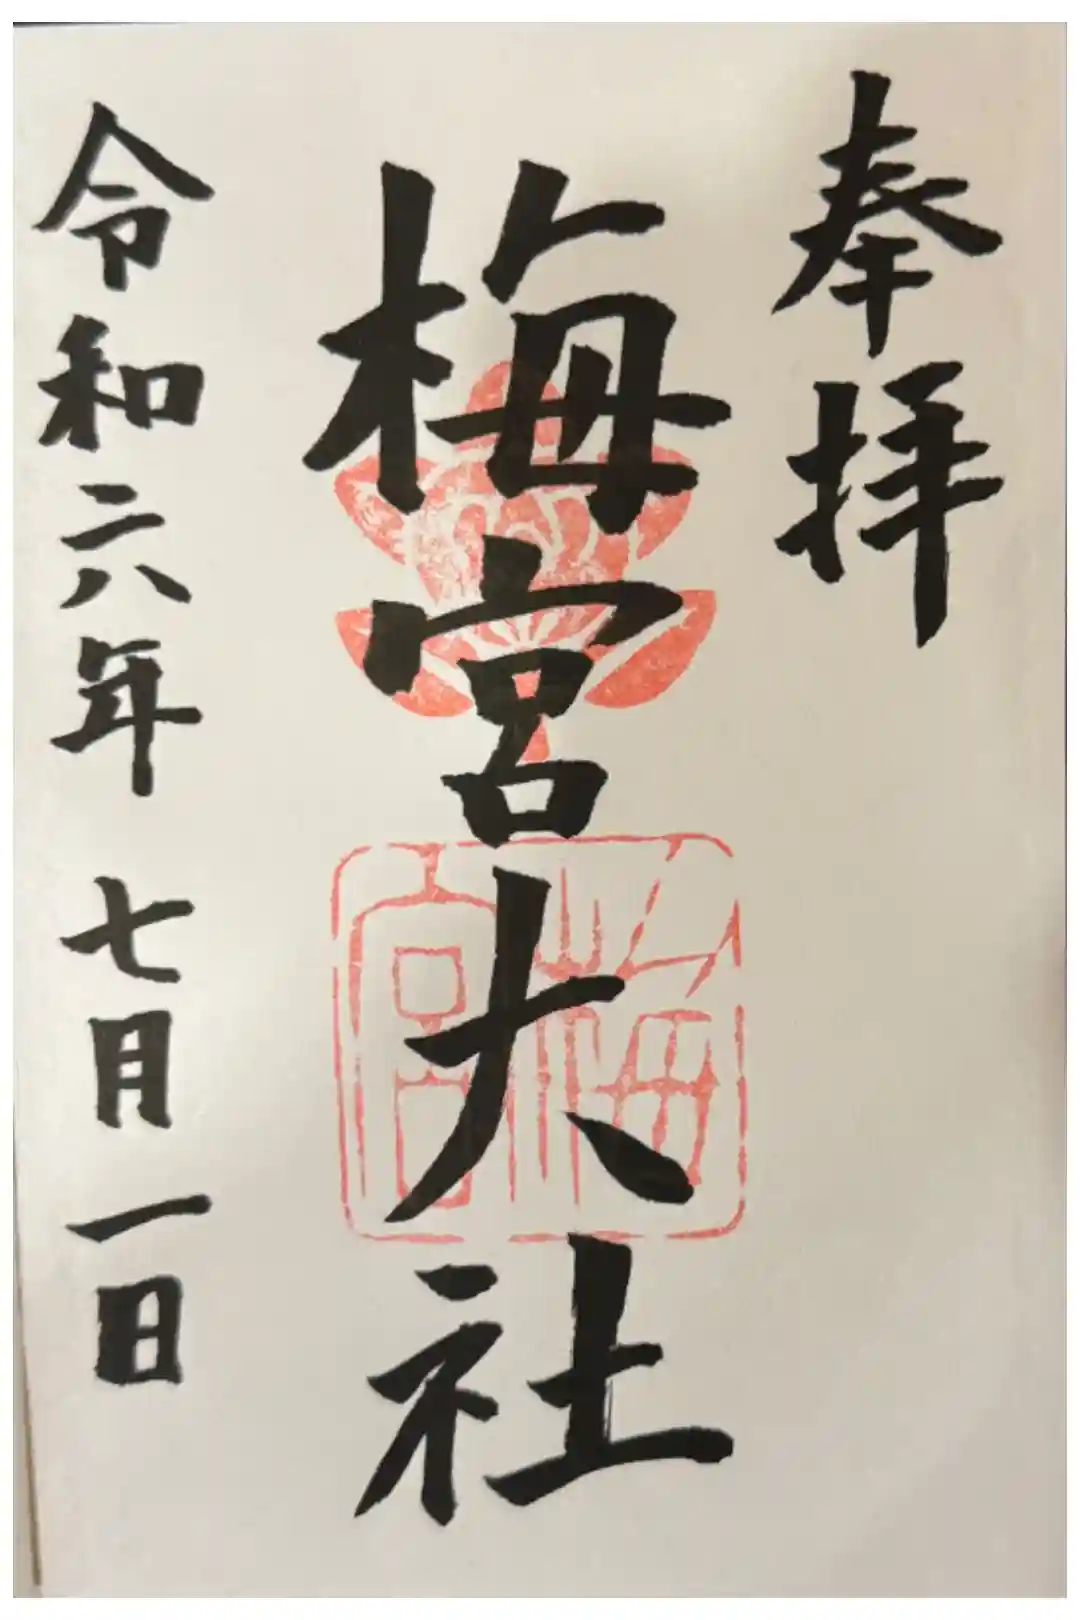 奉拝
梅宮大社
令和六年 七月一日
梅宮